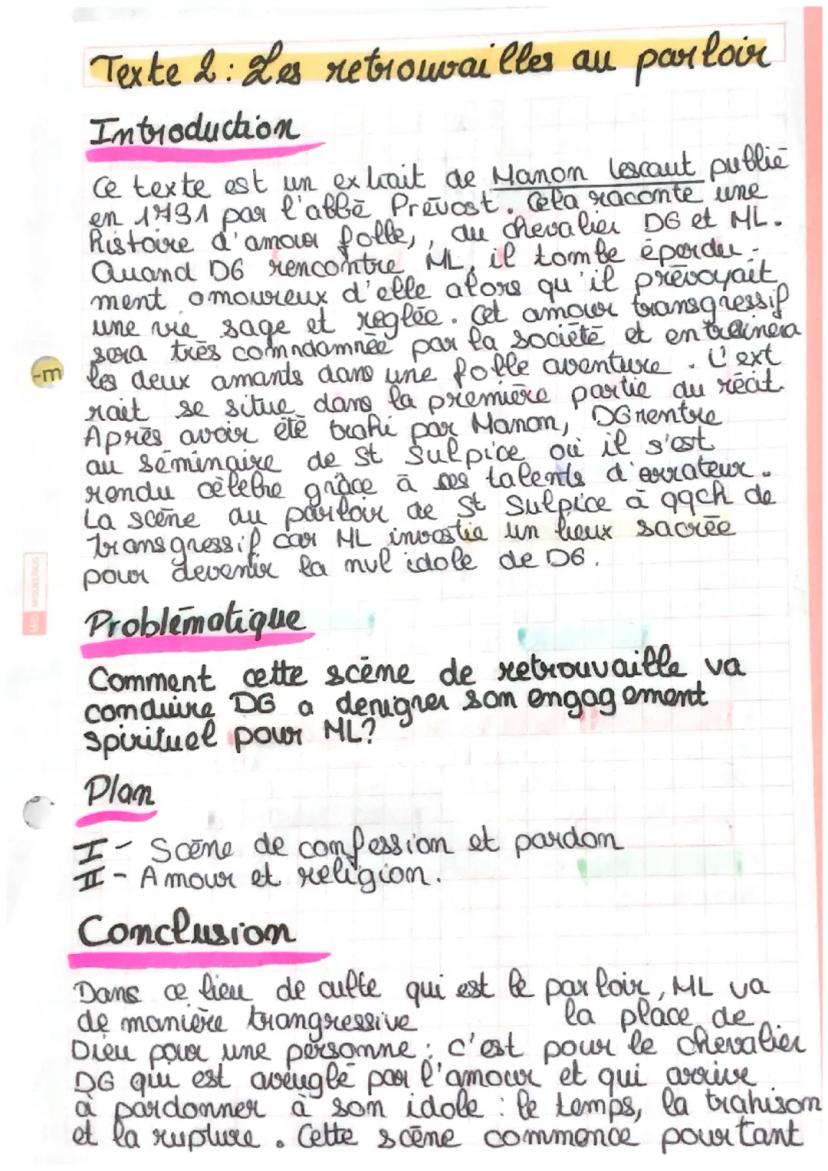 Texte 2 : Les retrouvailles au parloir
Introduction
Ce texte est un extrait de Manon Lescaut publié
en 1731 par l'abbé Prévost. Cela raconte une
histoire d'amour folle, , du chevalier DG et ML.
Quand DG rencontre ML, il tombe éperdu-
ment amoureux d'elle alors qu'il prévoyait
une vie sage et réglée. Cet amour transgressif
sera très comndamnée par la société et entrainera
les deux amants dans une folle aventure. L'ext
rait se situe dans la première partie du récit
Après avoir été trahi par Manon, DG rentre
au séminaire de St Sulpice où il s'est
rendu célèbre grâce à ses talents d'orrateur.
La scène au parloir de St Sulpice à qqch de
transgressif car ML investie un lieux sacrée
pour devenir la nvl idole de DG.
-m
Problématique
Comment cette scène de retrouvaille va
conduire DG a denigrer son engagement
spirituel pour ML?
Plan
I - Scène de confession et pardon
II - Amour et religion.
Conclusion
Dans ce lieu de culte qui est le parloir, ML va
de manière trangressive la place de
Dieu pour une personne : c'est pour le chevalier
DG qui est aveuglé par l'amour et qui arrive
à pardonner à son idole : le temps, la trahison
et la rupture. Cette scène commence pourtant